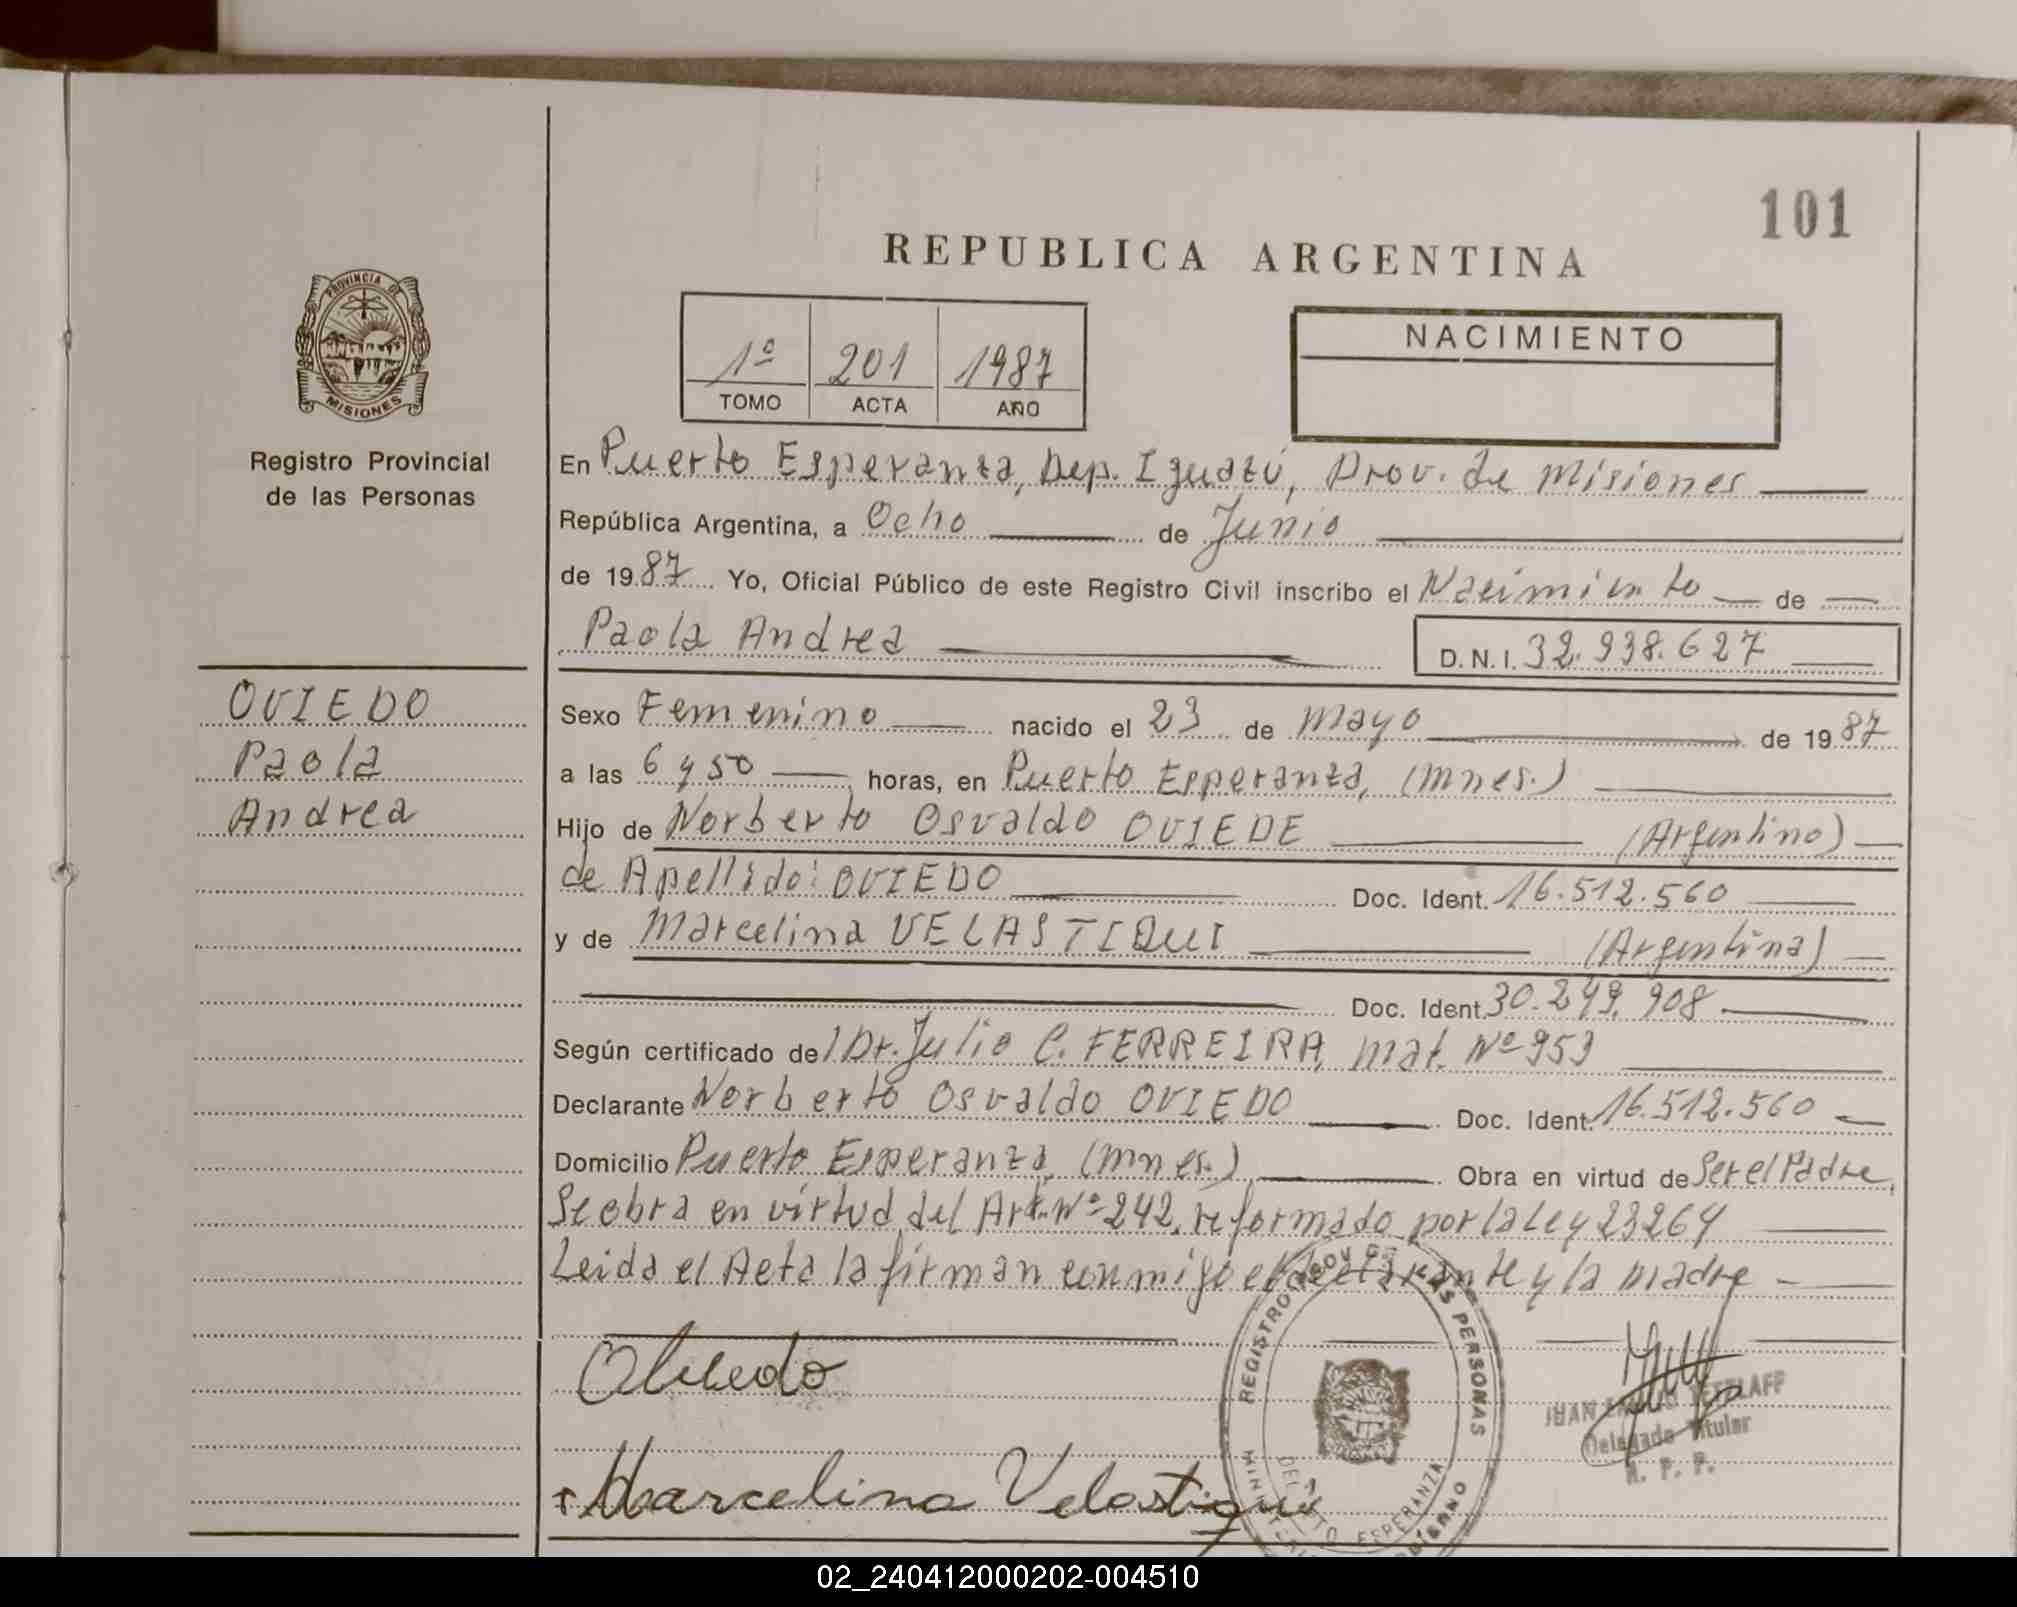 101
REPUBLICA ARGENTINA
PROVINCIA DE
MISIONES
Registro Provincial
de las Personas
1º 201 1987
TOMO ACTA AÑO
NACIMIENTO
En Puerto Esperanza, Dep. Iguazú, Prov. de Misiones
República Argentina, a Ocho de Junio
de 1987 Yo, Oficial Público de este Registro Civil inscribo el Nacimiento de
Paola Andrea D.N.I. 32.938.627
OVIEDO
Paola
Andrea
Sexo Femenino nacido el 23 de Mayo de 1987
a las 6 y 50 horas, en Puerto Esperanza, (Mnes.)
Hijo de Norberto Osvaldo OVIEDE (Argentino)
de Apellido: OVIEDO Doc. Ident. 16.512.560
y de Marcelina VELASTIQUI (Argentina)
Doc. Ident. 30.249.908
Según certificado del Dr. Julio C. FERREIRA, Mat. Nº 953
Declarante Norberto Osvaldo OVIEDO Doc. Ident. 16.512.560
Domicilio Puerto Esperanza, (Mnes.) Obra en virtud de Ser el Padre,
Se obra en virtud del Art. Nº 242, reformado por la Ley 23264
Leida el Acta la firman conmigo el declarante y la madre
Marcelina Velastiqui
REGISTRO PROV. DE LAS PERSONAS
PTO ESPERANZA
JUAN
Delegado Titular
R. P. P.
02_240412000202-004510